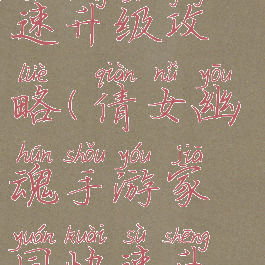 速升级攻
lüè qiàn nǚ yōu
略(倩女幽
hún shǒu yóu jiā
魂手游家
yuán kuài sù shēng
园快速升